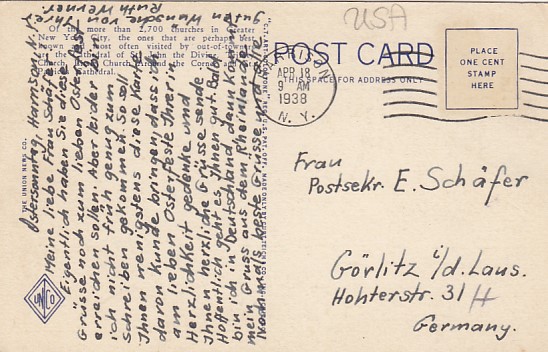 Of the more than 2,700 churches in Greater
New York City, the ones that are perhaps best
known and most often visited by out-of-town
THE UNION NEWS CO.
UNCO
Ostersonntag, Harrison, N.Y.
Meine liebe Frau Schäfer!
Eigentlich haben Sie diese
Grüsse noch zum lieben Osterfest
erreichen sollen. Aber leider bin
ich nicht früh genug zum
Schreiben gekommen. So soll
Ihnen wenigstens diese Karte
davon Kunde bringen, dass ich
am lieben Osterfeste Ihrer in
Herzlichkeit gedenke und
Ihnen herzliche Grüsse sende.
Hoffentlich geht es Ihnen gut. Bald
bin ich in Deutschland, dann kommt
mein Gruss aus dem Rheinland.
Nochmals beste Grüsse und alle
guten Wünsche von
Ihrer
Ruth Werner.
USA
POST CARD
THIS SPACE FOR ADDRESS ONLY
APR 18
9 AM
1938
N. Y.
PLACE
ONE CENT
STAMP
HERE
Frau
Postsekr. E. Schäfer
Görlitz i/d. Laus.
Hohterstr. 31
Germany.